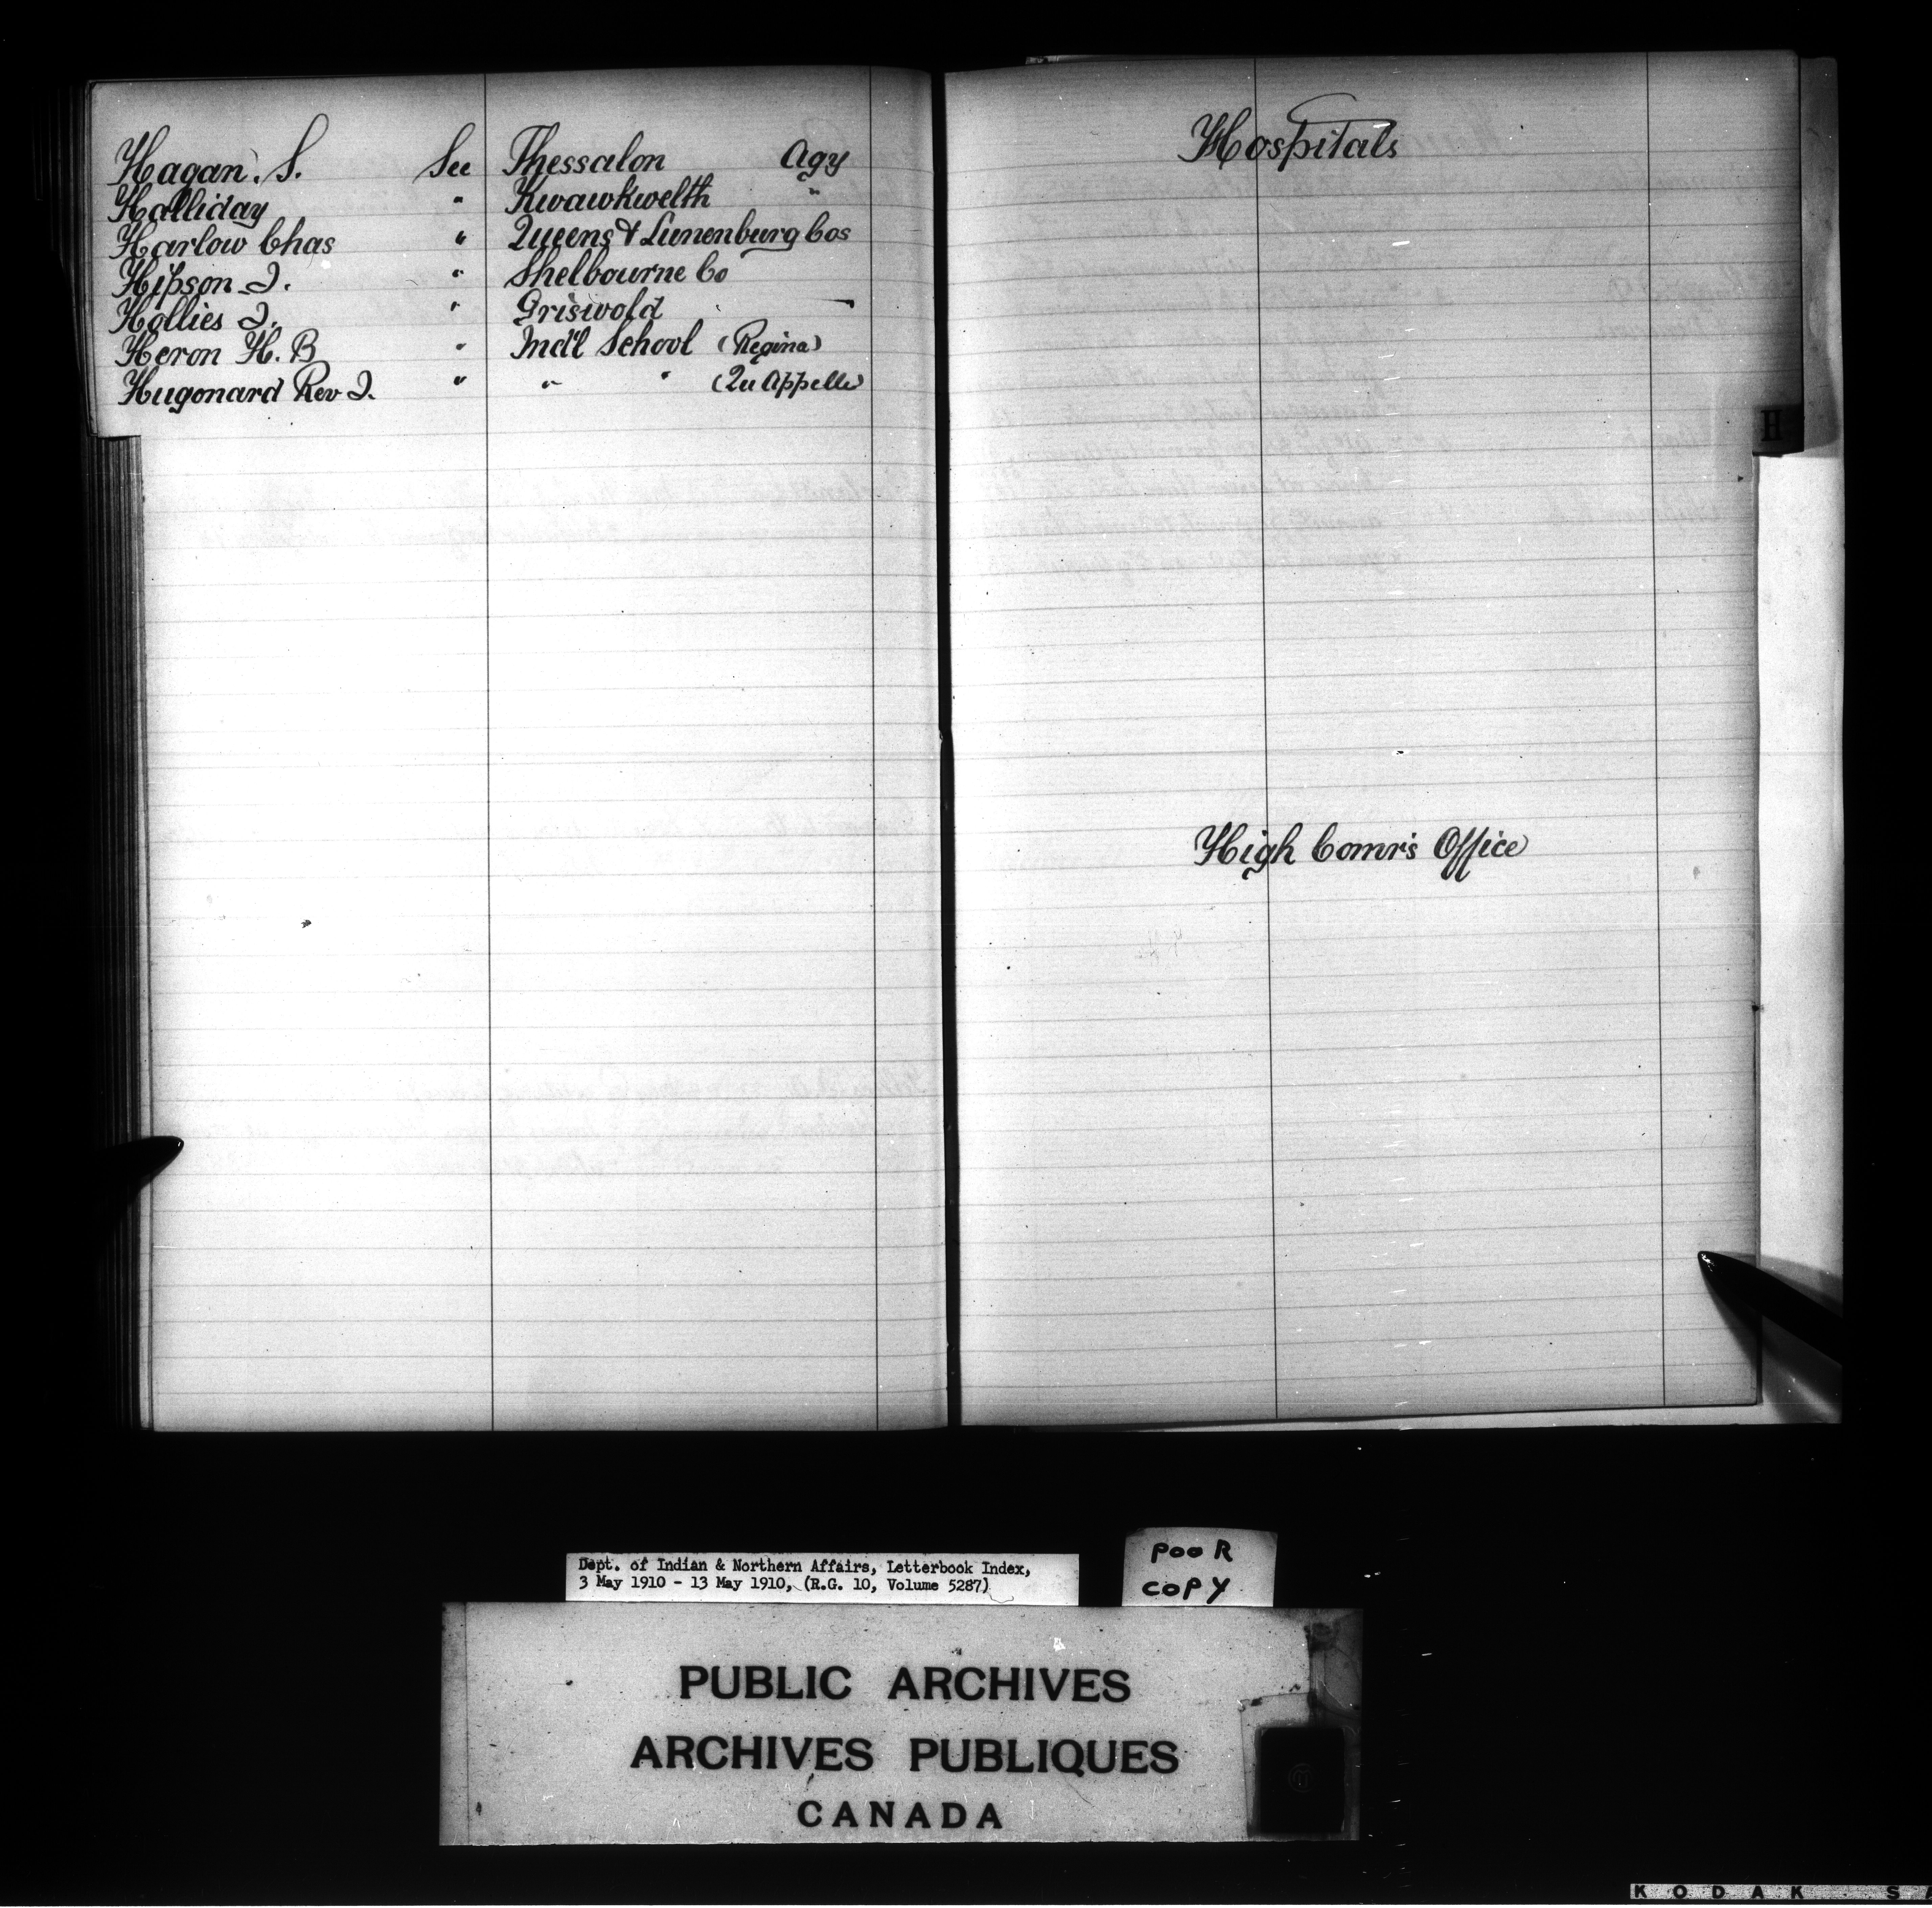 Hagan. S. See Thessalon Agy
Halliday " Kwawkwelth "
Harlow Chas " Queens & Lunenburg Cos
Hipson J. " Shelbourne Co
Hollies J. " Griswold
Heron H. B " Ind'l School (Regina)
Hugonard Rev J. " " " (Qu Appelle)
Hospitals
H
High Comr's Office
Dept. of Indian & Northern Affairs, Letterbook Index,
3 May 1910 - 13 May 1910, (R.G. 10, Volume 5287)
POOR
COPY
PUBLIC ARCHIVES
ARCHIVES PUBLIQUES
CANADA
KODAK